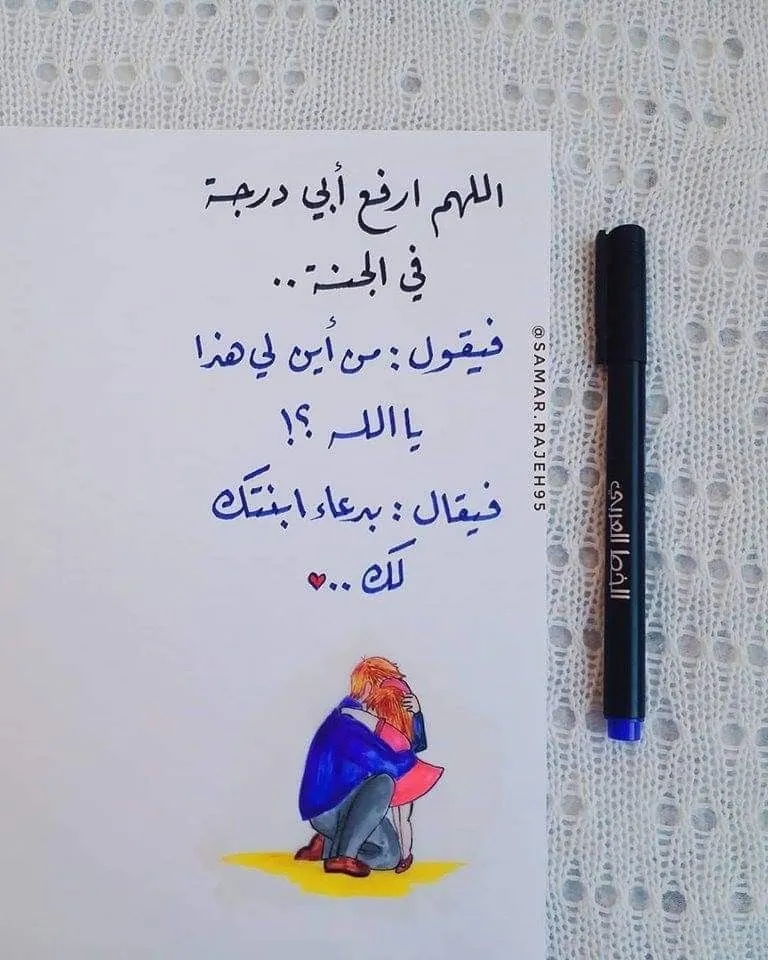 اللهم ارفع أبي درجة
في الجنة..
فيقول: من أين لي هذا
يا الله ؟!
فيقال: بدعاء ابنتك
لك ..♥
@SAMAR.RAJEH95
الخط العربي